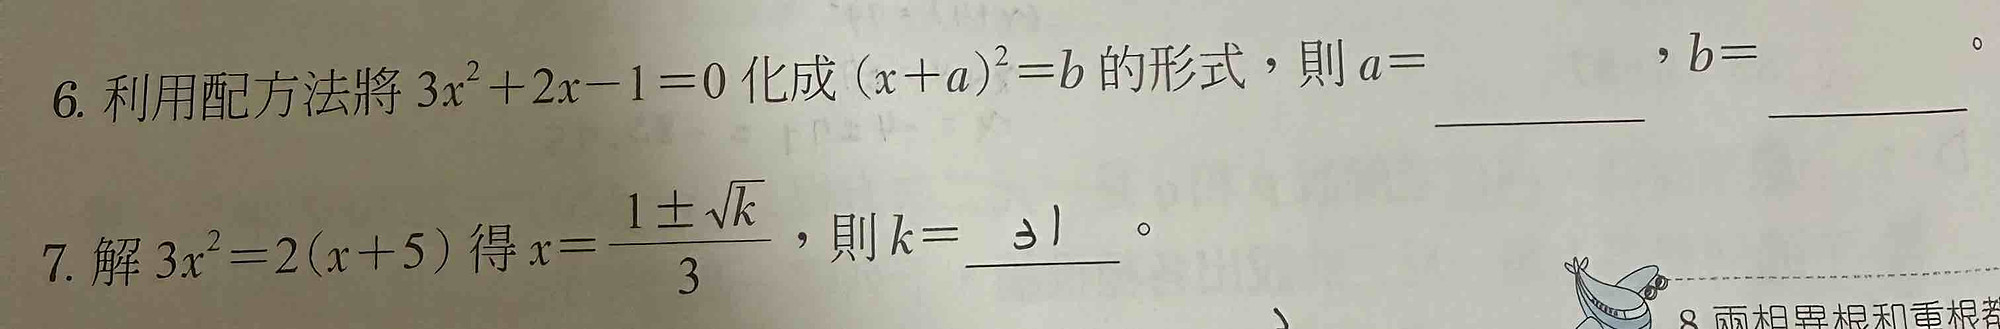 6. 利用配方法將 3x²+2x−1=0 化成 (x+a)²=b 的形式，則 a=______，b=______。
7. 解 3x²=2(x+5) 得 x=(1±√k)/3，則 k= 31 。
8 兩相異根和重根都